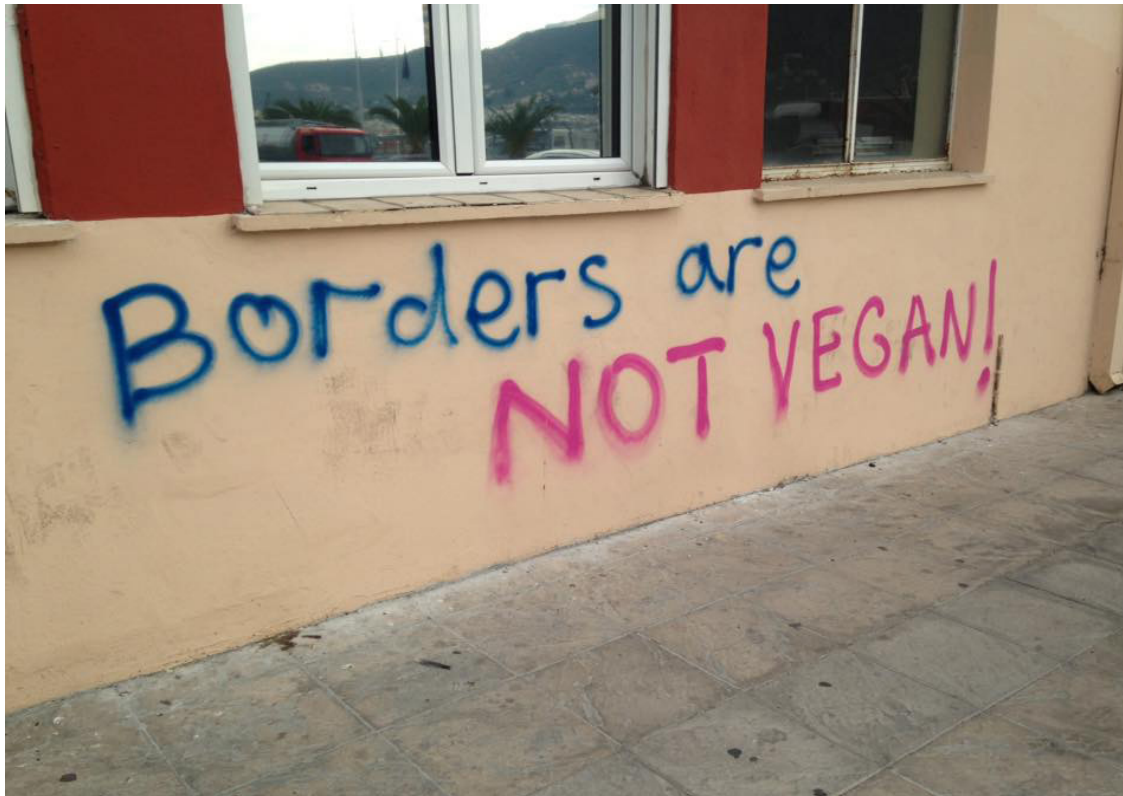 Borders are
NOT VEGAN!